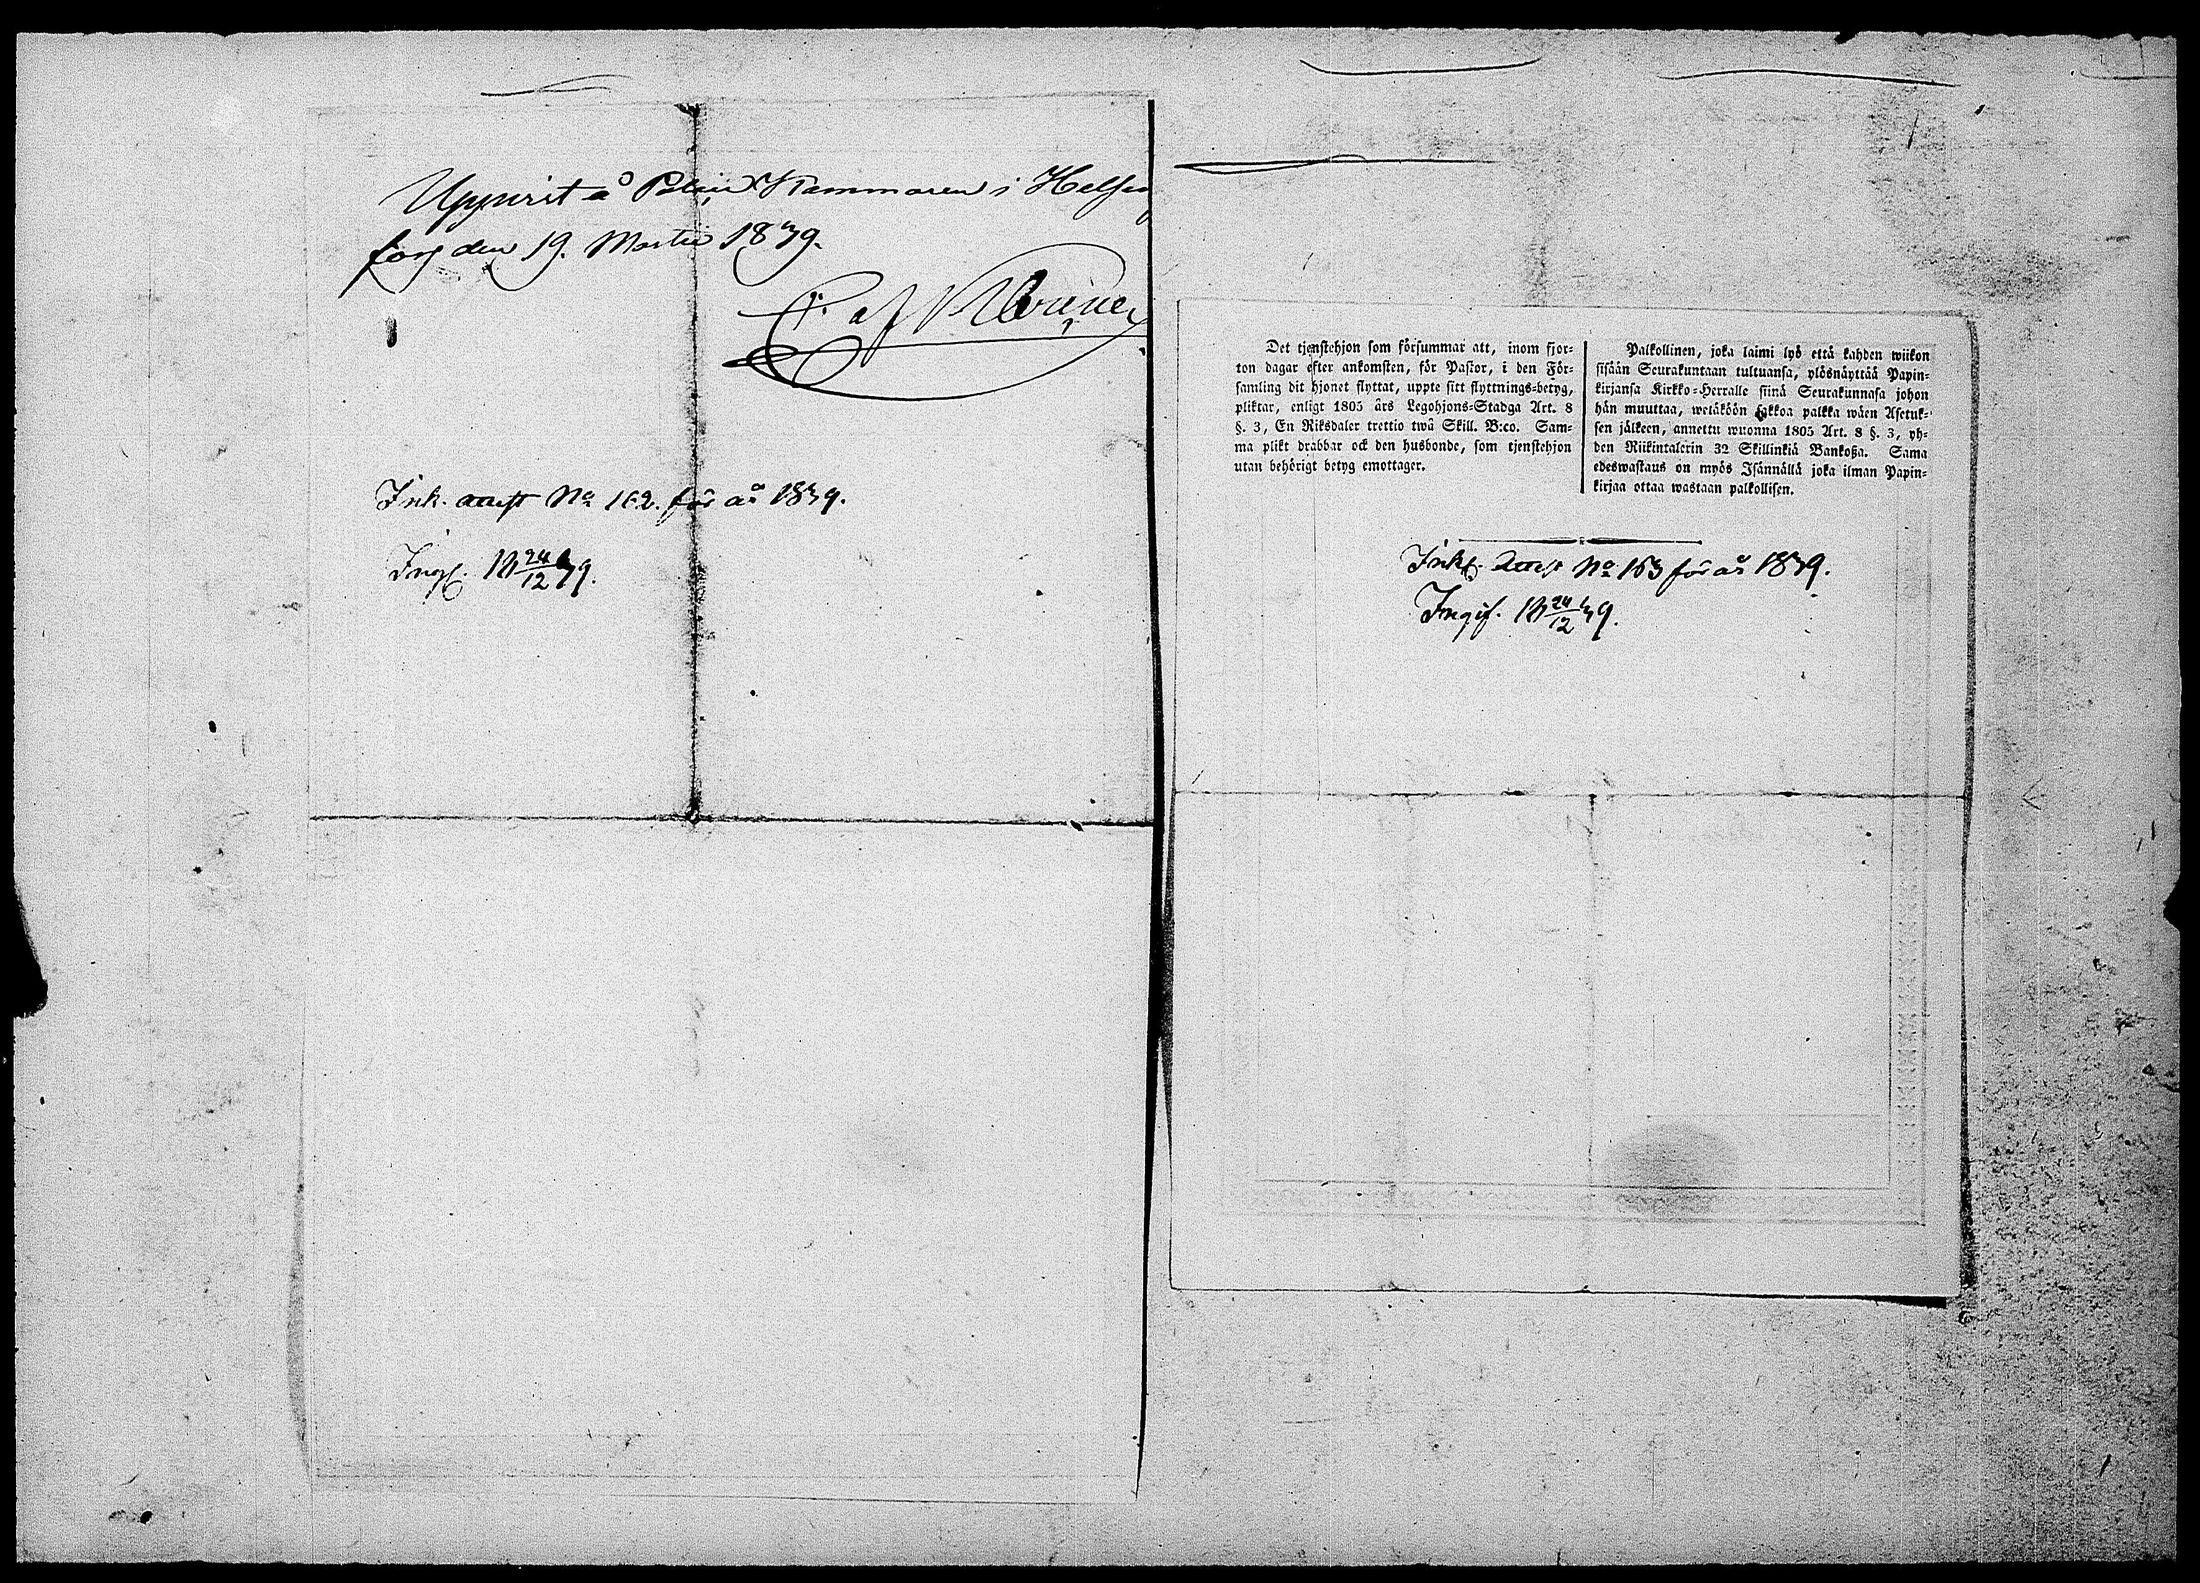 Uppvist å Police Kammaren i Helsing
fors den 19. Martii 1839.
C. af
Ink. attest No 162. för år 1839.
Ingf. 18 24/12 39.
Det tjenstehjon som försummar att, inom fjor-
ton dagar efter ankomsten, för Pastor, i den För-
samling dit hjonet flyttat, uppte sitt flyttnings-betyg,
pliktar, enligt 1805 års Legohjons-Stadga Art. 8
§. 3, En Riksdaler trettio twå Skill. B:co. Sam-
ma plikt drabbar ock den husbonde, som tjenstehjon
utan behörigt betyg emottager.
Palkollinen, joka laimi lyö että kahden wiikon
sisään Seurakuntaan tultuansa, ylösnäyttää Papin-
kirjansa Kirkko-Herralle siinä Seurakunnasa johon
hän muuttaa, wetäköön sakkoa palkka wäen Asetuk-
sen jälkeen, annettu wuonna 1805 Art. 8 §. 3, yh-
den Riikintalerin 32 Skillinkiä Bankoßa. Sama
edeswastaus on myös Isännällä joka ilman Papin-
kirjaa ottaa wastaan palkollisen.
Inkf. Attest No 163 för år 1839.
Ingif. 18 24/12 39.